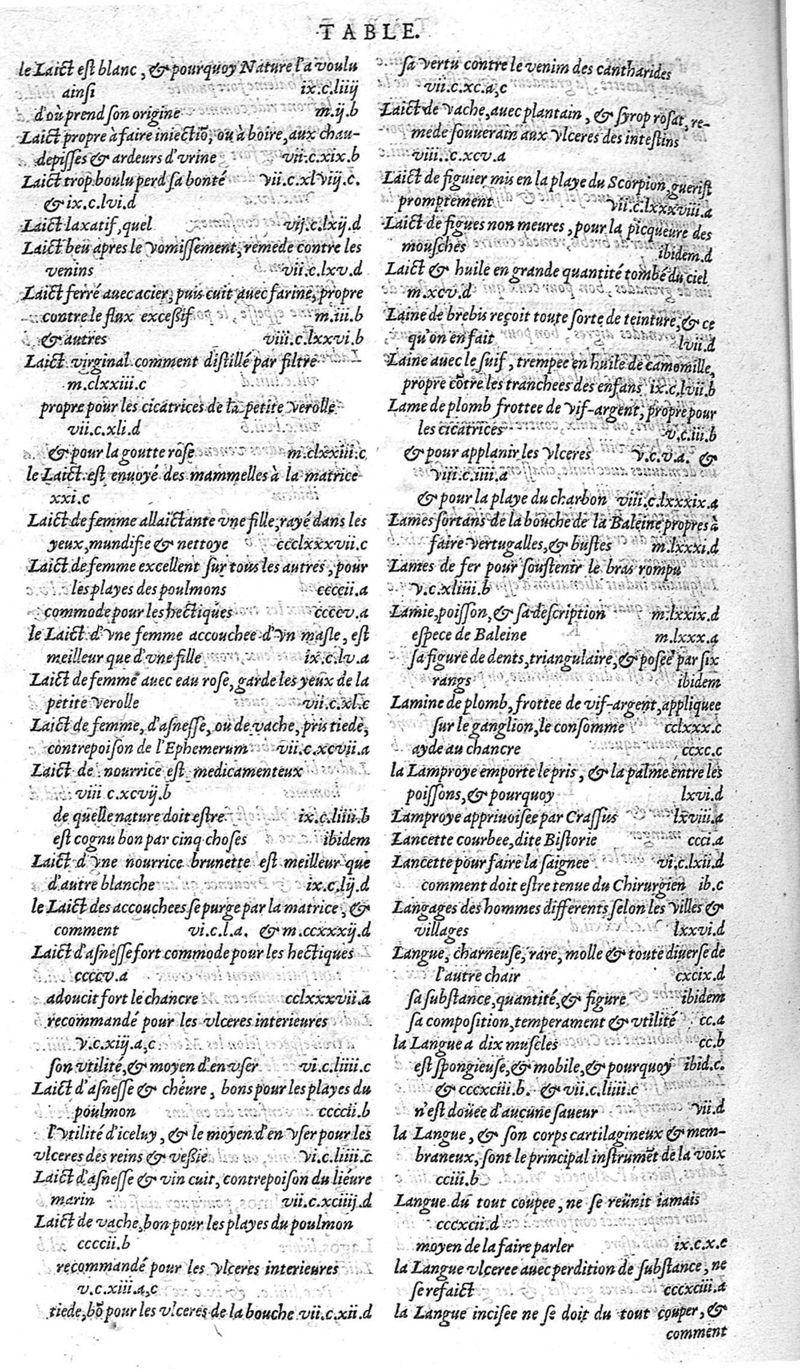 TABLE.
le Laict est blanc, & pourquoy Nature l'a voulu
ainsi ix.c.liiij
d'où prend son origine m.ij.b
Laict propre à faire iniectiõ, ou à boire, aux chau-
depisses & ardeurs d'vrine vii.c.xix.b
Laict trop boulu perd sa bonté vii.c.xlviij.c.
& ix.c.lvi.d
Laict laxatif, quel vij.c.lxij.d
Laict beu apres le vomissement, remede contre les
venins vii.c.lxv.d
Laict ferré auec acier, puis cuit auec farine, propre
contre le flux excessif m.iii.b
& autres viii.c.lxxvi.b
Laict virginal comment distillé par filtre
m.clxxiii.c
propre pour les cicatrices de la petite verolle
vii.c.xli.d
& pour la goutte rose m.clxxiii.c
le Laict est enuoyé des mammelles à la matrice
xxi.c
Laict de femme allaictante vne fille, rayé dans les
yeux, mundifie & nettoye ccclxxxvii.c
Laict de femme excellent sur tous les autres, pour
les playes des poulmons ccccii.a
commode pour les hectiques ccccv.a
le Laict d'vne femme accouchee d'vn masle, est
meilleur que d'vne fille ix.c.lv.a
Laict de femme auec eau rose, garde les yeux de la
petite verolle vii.c.xl.c
Laict de femme, d'asnesse, ou de vache, pris tiede,
contrepoison de l'Ephemerum vii.c.xcvii.a
Laict de nourrice est medicamenteux
viii c.xcvij.b
de quelle nature doit estre ix.c.liiii.b
est cognu bon par cinq choses ibidem
Laict d'vne nourrice brunette est meilleur que
d'autre blanche ix.c.lij.d
le Laict des accouchees se purge par la matrice, &
comment vi.c.l.a. & m.ccxxxij.d
Laict d'asnesse fort commode pour les hectiques
ccccv.a
adoucit fort le chancre cclxxxvii.a
recommandé pour les vlceres interieures
v.c.xij.a,c
son vtilité, & moyen d'en vser vi.c.liiii.c
Laict d'asnesse & chéure, bons pour les playes du
poulmon ccccii.b
l'vtilité d'iceluy, & le moyen d'en vser pour les
vlceres des reins & vessie vi.c.liiii.c
Laict d'asnesse & vin cuit, contrepoison du liéure
marin vii.c.xciiij.d
Laict de vache, bon pour les playes du poulmon
ccccii.b
recommandé pour les vlceres interieures
v.c.xiii.a,c
tiede, bõ pour les vlceres de la bouche vii.c.xii.d
sa vertu contre le venim des cantharides
vii.c.xc.a,c
Laict de vache, auec plantain, & syrop rosat, re-
mede souuerain aux vlceres des intestins
viii..c.xcv.a
Laict de figuier mis en la playe du Scorpion, guerist
promptement vii.c.lxxxviii.a
Laict de figues non meures, pour la picqueure des
mousches ibidem.d
Laict & huile en grande quantité tombé du ciel
m.xcv.d
Laine de brebis reçoit toute sorte de teinture, & ce
qu'on en fait lvii.d
Laine auec le suif, trempee en huile de camomille,
propre cõtre les tranchees des enfans ix.c.lvii.b
Lame de plomb frottee de vif-argent, propre pour
les cicatrices v.c.iii.b
& pour applanir les vlceres v.c.v.a. &
viii.c.iiii.a
& pour la playe du charbon viii.c.lxxxix.a
Lames sortans de la bouche de la Baleine propres à
faire vertugalles, & bustes m.lxxxi.d
Lames de fer pour soustenir le bras rompu
v.c.xliiii.b
Lamie, poisson, & sa description m.lxxix.d
espece de Baleine m.lxxx.a
sa figure de dents, triangulaire, & posée par six
rangs ibidem
Lamine de plomb, frottee de vif-argent, appliquee
sur le ganglion, le consomme cclxxx.c
ayde au chancre ccxc.c
la Lamproye emporte le pris, & la palme entre les
poissons, & pourquoy lxvi.d
Lamproye appriuoisee par Crassus lxviii.a
Lancette courbee, dite Bistorie ccci.a
Lancette pour faire la saignee vi.c.lxii.d
comment doit estre tenue du Chirurgien ib.c
Langages des hommes differents selon les villes &
villages lxxvi.d
Langue, charneuse, rare, molle & toute diuerse de
l'autre chair cxcix.d
sa substance, quantité, & figure ibidem
sa composition, temperament & vtilité cc.a
la Langue a dix muscles cc.b
est spongieuse, & mobile, & pourquoy ibid.c.
& cccxciii.b. & vii.c.liiii.c
n'est doüee d'aucune saueur vii.d
la Langue, & son corps cartilagineux & mem-
braneux, sont le principal instrumẽt de la voix
cciii.b
Langue du tout coupee, ne se reünit iamais
cccxcii.d
moyen de la faire parler ix.c.x.e
la Langue vlceree auec perdition de substance, ne
se refaict cccxciii.a
la Langue incisee ne se doit du tout couper, &
comment